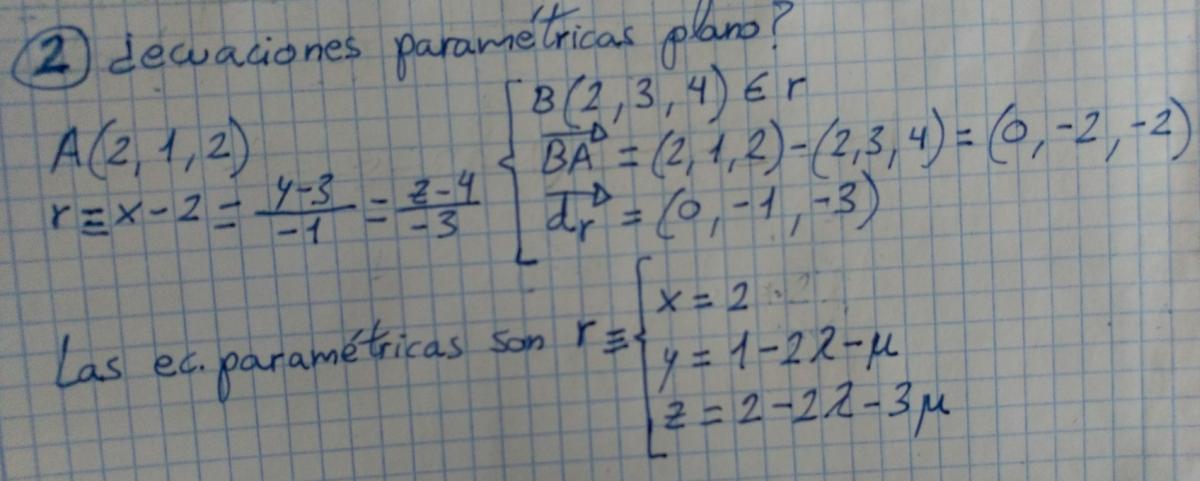 2 ¿ecuaciones paramétricas plano?
A(2,1,2)
r ≡ x-2 = y-3/-1 = z-4/-3
B(2,3,4) ∈ r
BA = (2,1,2)-(2,3,4) = (0,-2,-2)
dr = (0,-1,-3)
Las ec. paramétricas son r ≡
x = 2
y = 1-2λ-μ
z = 2-2λ-3μ